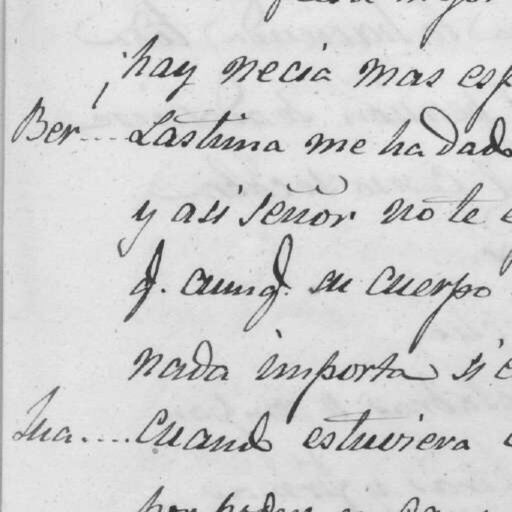 hay necia mas esp
Ber.... Lastima me ha dado
y asi señor no te
q. aunq. su cuerpo
nada importa si e
Jua.... Cuando estuviera